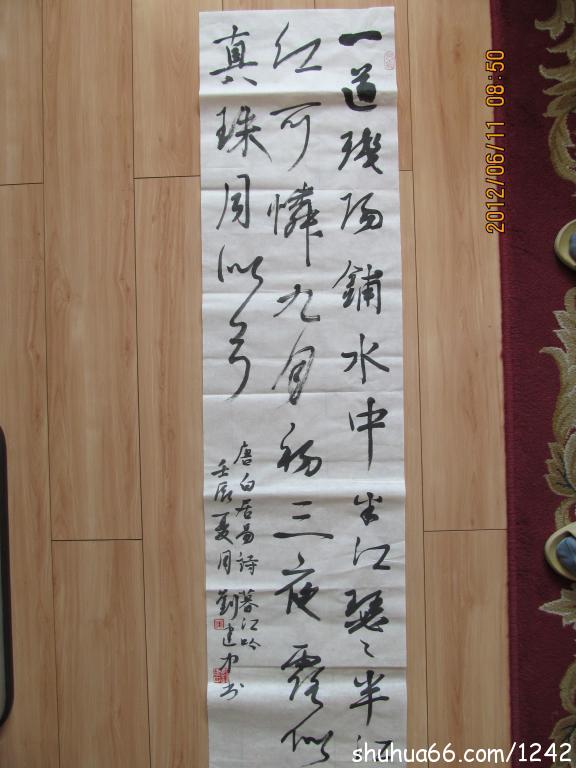 一道殘陽鋪水中半江瑟〻半江
紅可憐九月初三夜露似
真珠月似弓
唐白居易詩暮江吟
壬辰夏月劉建力书
2012/06/11 08:50
shuhua66.com/1242